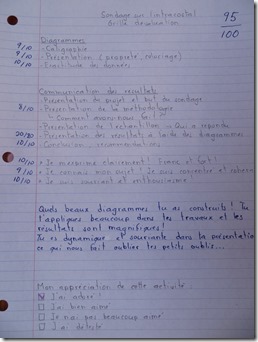 Sondage sur l'intracostal
Grille d'évaluation
95
100
Diagrammes
9/10 - Calligraphie
9/10 - Présentation (propreté, coloriage)
10/10 - Exactitude des données
Communication des résultats
- Présentation du projet et but du sondage
8/10 - Présentation de la méthodologie
- Présentation de l'échantillon → Qui a répondu
20/20 - Présentation des résultats à l'aide des diagrammes
10/10 - Conclusion, recommandations
10/10 * Je m'exprime clairement! Franc et fort!
9/10 * Je connais mon sujet! Je suis concentré et
10/10 * Je suis souriant et enthousiaste!
Quels beaux diagrammes tu as construits! Tu
t'appliques beaucoup dans tes travaux et les
résultats sont magnifiques!
Tu es dynamique et souriante dans ta présentation
ce qui nous fait oublier tes petits oublis...
Mon appréciation de cette activité:
J'ai adoré!
J'ai bien aimé
Je n'ai pas beaucoup aimé
J'ai détesté